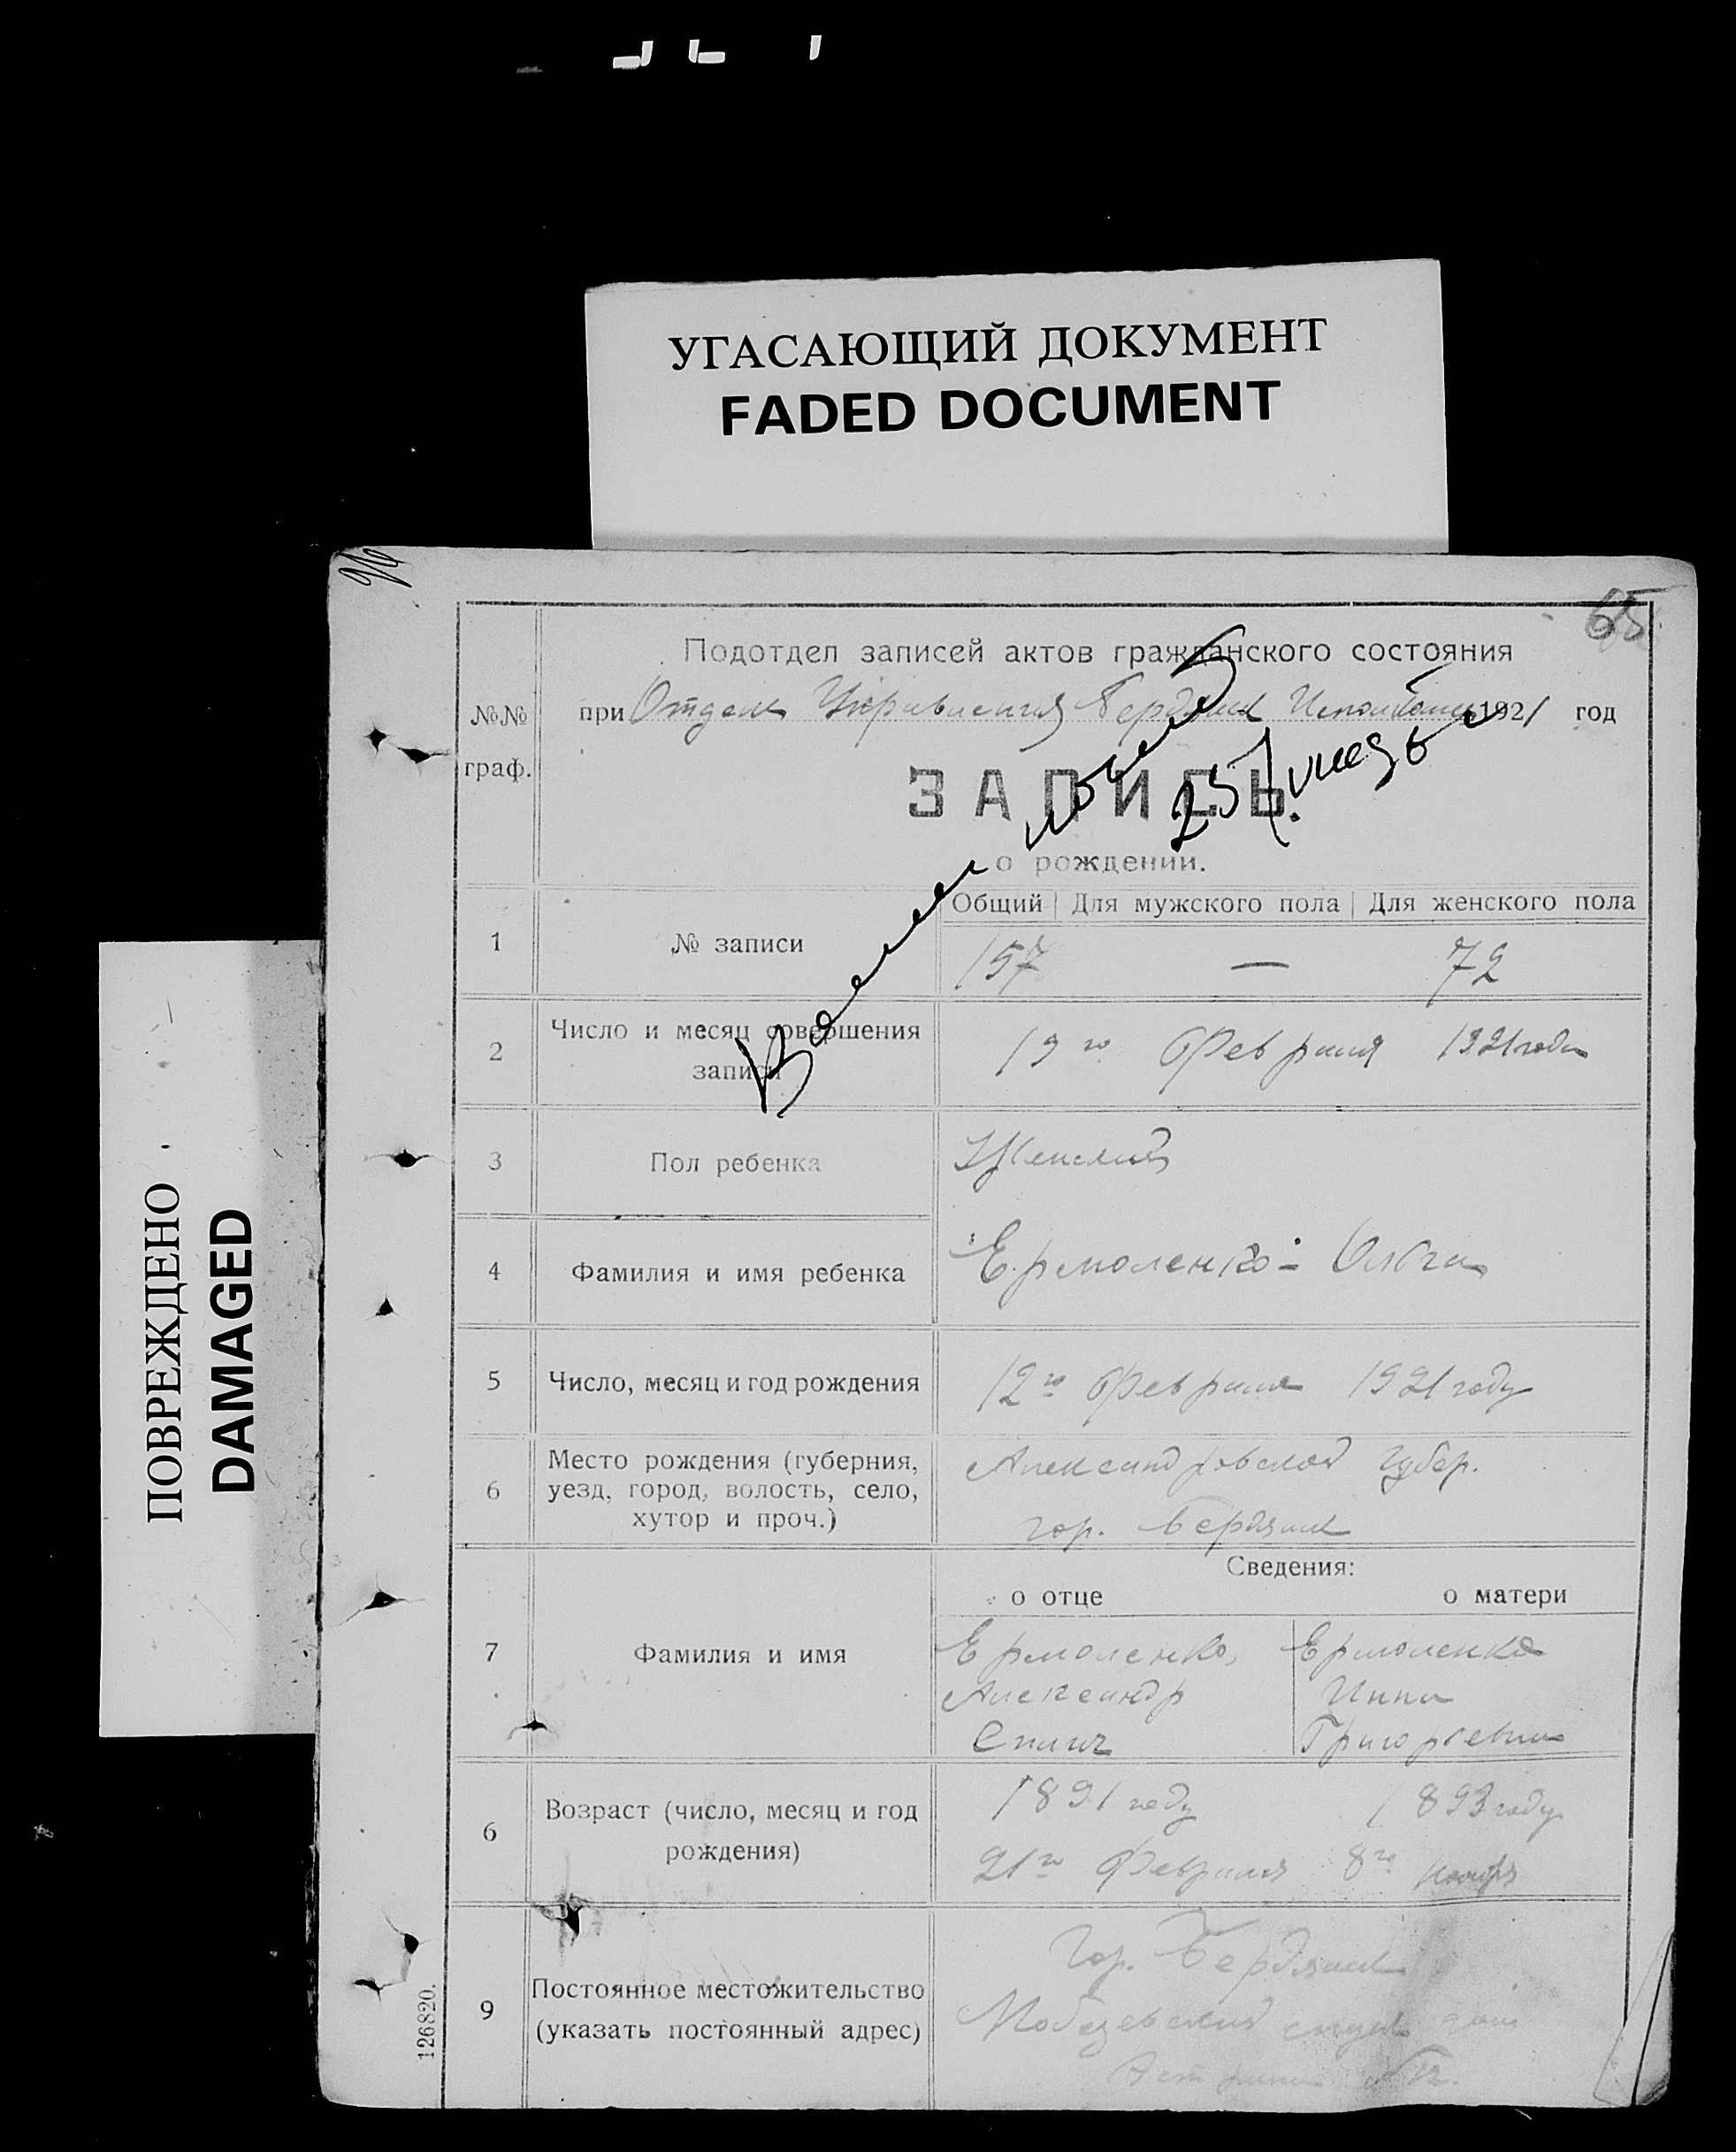 УГАСАЮЩИЙ ДОКУМЕНТ
FADED DOCUMENT
ПОВРЕЖДЕНО
DAMAGED
65
Подотдел записей актов гражданского состояния
№№ граф.
при Отделе Управления Бердянск Исполкома 1921 год
ЗАПИСЬ
о рождении.
Общий Для мужского пола Для женского пола
1 № записи 157 — 72
2 Число и месяц совершения
записи
19го Февраля 1921 года
3 Пол ребенка Женский
4 Фамилия и имя ребенка Ермоленко - Ольга
5 Число, месяц и год рождения 12го Февраля 1921 году
6 Место рождения (губерния,
уезд, город, волость, село,
хутор и проч.)
Александровской губер.
гор. Бердянск
Сведения:
о отце о матери
7 Фамилия и имя
Ермоленко, Ермоленко
Александр Инна
Григорьевна
6 Возраст (число, месяц и год
рождения)
1891 году 1893 году
21го Февраля 8го Ноября
9 Постоянное местожительство
(указать постоянный адрес)
Гор. Бердянск
126820.